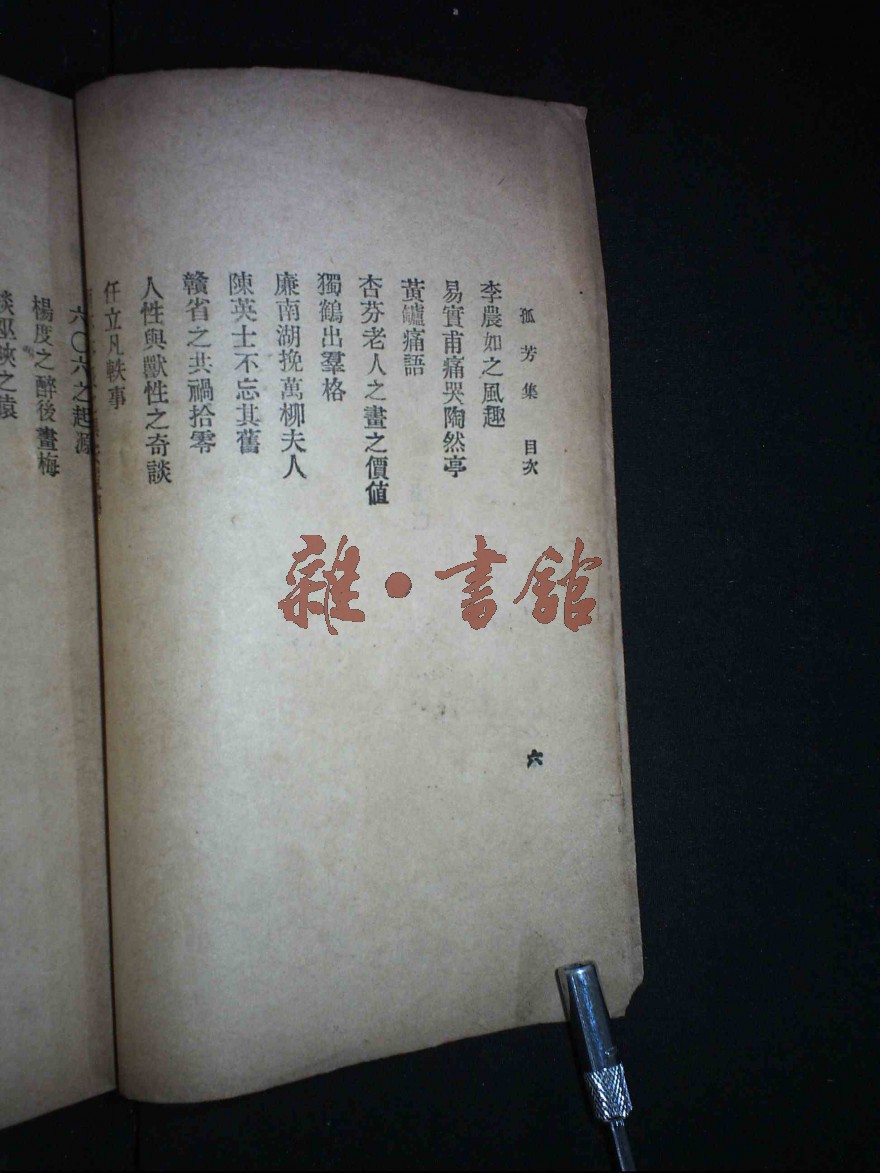 孤芳集 目次
李農如之風趣
易實甫痛哭陶然亭
黃鱸痛語
杏芬老人之畫之價值
獨鶴出羣格
廉南湖挽萬柳夫人
陳英士不忘其舊
贛省之共禍拾零
人性與獸性之奇談
任立凡軼事
六
六〇六之起源
楊度之醉後畫梅
談巫峽之猿
雜·書館